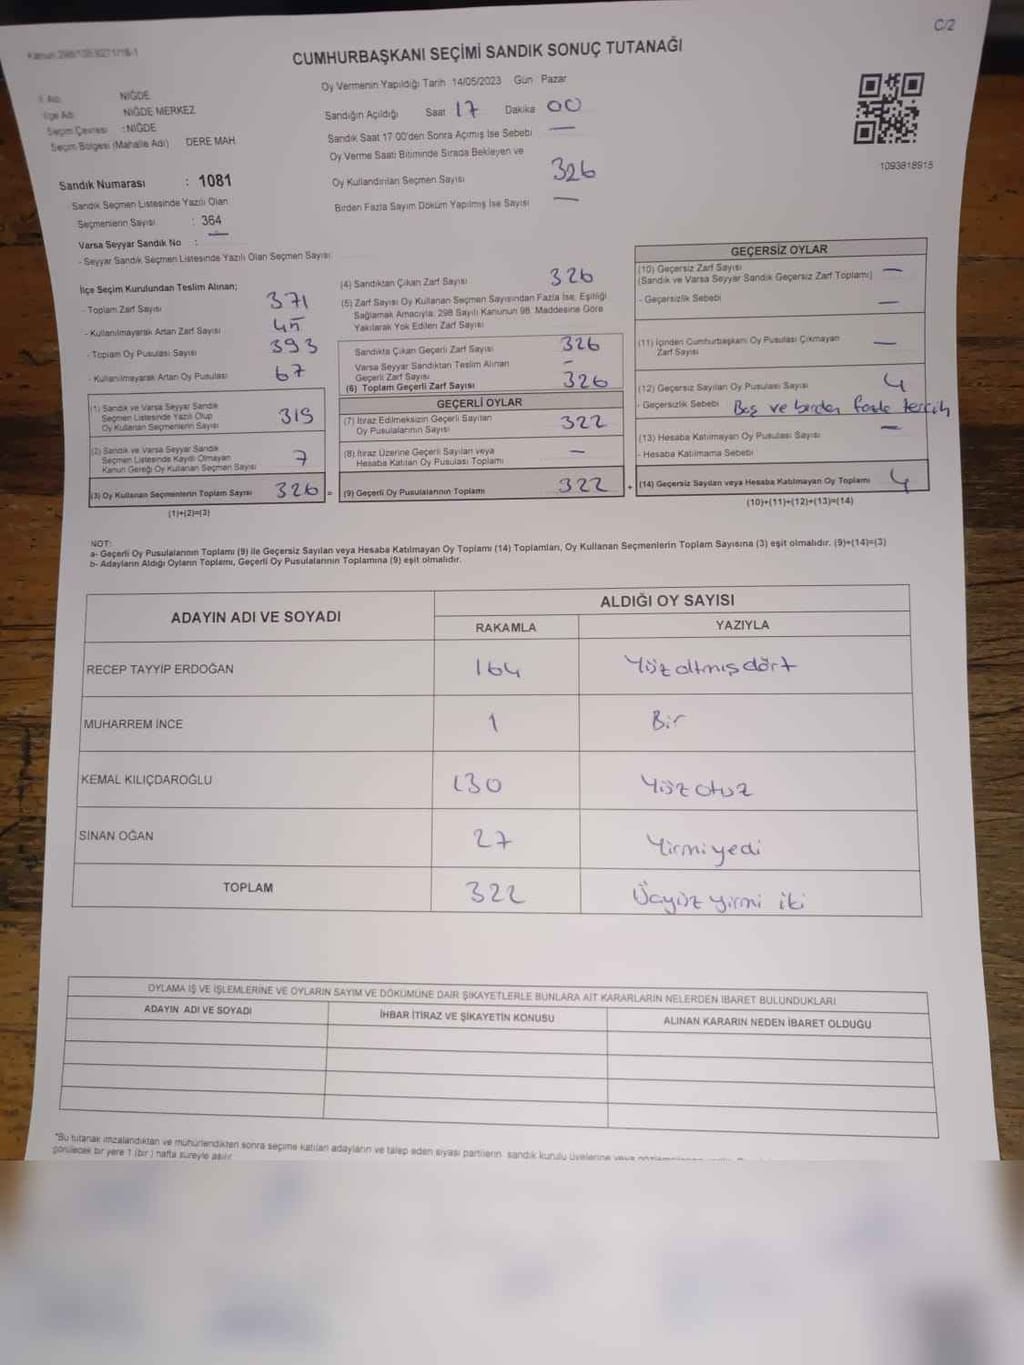 C/2
CUMHURBAŞKANI SEÇİMİ SANDIK SONUÇ TUTANAĞI
Oy Vermenin Yapıldığı Tarih 14/05/2023 Gün Pazar
NİĞDE
İlçe Adı NİĞDE MERKEZ
Seçim Çevresi : NİĞDE
Seçim Bölgesi (Mahalle Adı) DERE MAH.
Sandığın Açıldığı Saat 17 Dakika 00
Sandık Saat 17.00'den Sonra Açılmış İse Sebebi —
Oy Verme Saati Bitiminde Sırada Bekleyen ve
Oy Kullandırılan Seçmen Sayısı 326
Birden Fazla Sayım Döküm Yapılmış İse Sayısı —
1093818915
Sandık Numarası : 1081
Sandık Seçmen Listesinde Yazılı Olan
Seçmenlerin Sayısı : 364
Varsa Seyyar Sandık No : —
- Seyyar Sandık Seçmen Listesinde Yazılı Olan Seçmen Sayısı:
İlçe Seçim Kurulundan Teslim Alınan;
- Toplam Zarf Sayısı 371
- Kullanılmayarak Artan Zarf Sayısı 45
- Toplam Oy Pusulası Sayısı 393
- Kullanılmayarak Artan Oy Pusulası 67
(1) Sandık ve Varsa Seyyar Sandık
Seçmen Listesinde Yazılı Olup
Oy Kullanan Seçmenlerin Sayısı 319
(2) Sandık ve Varsa Seyyar Sandık
Seçmen Listesinde Kaydı Olmayan
Kanun Gereği Oy Kullanan Seçmen Sayısı 7
(3) Oy Kullanan Seçmenlerin Toplam Sayısı 326 =
(1)+(2)=(3)
(4) Sandıktan Çıkan Zarf Sayısı 326
(5) Zarf Sayısı Oy Kullanan Seçmen Sayısından Fazla İse, Eşitliği
Sağlamak Amacıyla, 298 Sayılı Kanunun 98. Maddesine Göre
Yakılarak Yok Edilen Zarf Sayısı
Sandıkta Çıkan Geçerli Zarf Sayısı 326
Varsa Seyyar Sandıktan Teslim Alınan
Geçerli Zarf Sayısı —
(6) Toplam Geçerli Zarf Sayısı 326
GEÇERLİ OYLAR
(7) İtiraz Edilmeksizin Geçerli Sayılan
Oy Pusulalarının Sayısı 322
(8) İtiraz Üzerine Geçerli Sayılan veya
Hesaba Katılan Oy Pusulası Toplamı —
(9) Geçerli Oy Pusulalarının Toplamı 322 +
GEÇERSİZ OYLAR
(10) Geçersiz Zarf Sayısı
(Sandık ve Varsa Seyyar Sandık Geçersiz Zarf Toplamı) —
- Geçersizlik Sebebi —
(11) İçinden Cumhurbaşkanı Oy Pusulası Çıkmayan
Zarf Sayısı —
(12) Geçersiz Sayılan Oy Pusulası Sayısı 4
- Geçersizlik Sebebi Boş ve birden fazla tercih
(13) Hesaba Katılmayan Oy Pusulası Sayısı —
- Hesaba Katılmama Sebebi
(14) Geçersiz Sayılan veya Hesaba Katılmayan Oy Toplamı 4
(10)+(11)+(12)+(13)=(14)
NOT:
a- Geçerli Oy Pusulalarının Toplamı (9) ile Geçersiz Sayılan veya Hesaba Katılmayan Oy Toplamı (14) Toplamları, Oy Kullanan Seçmenlerin Toplam Sayısına (3) eşit olmalıdır. (9)+(14)=(3)
b- Adayların Aldığı Oyların Toplamı, Geçerli Oy Pusulalarının Toplamına (9) eşit olmalıdır.
ADAYIN ADI VE SOYADI
ALDIĞI OY SAYISI
RAKAMLA YAZIYLA
RECEP TAYYİP ERDOĞAN 164 Yüz altmış dört
MUHARREM İNCE 1 Bir
KEMAL KILIÇDAROĞLU 130 Yüz otuz
SİNAN OĞAN 27 Yirmi yedi
TOPLAM 322 Üçyüz yirmi iki
OYLAMA İŞ VE İŞLEMLERİNE VE OYLARIN SAYIM VE DÖKÜMÜNE DAİR ŞİKAYETLERLE BUNLARA AİT KARARLARIN NELERDEN İBARET BULUNDUKLARI
ADAYIN ADI VE SOYADI İHBAR İTİRAZ VE ŞİKAYETİN KONUSU ALINAN KARARIN NEDEN İBARET OLDUĞU
*Bu tutanak imzalandıktan ve mühürlendikten sonra seçime katılan adayların ve talep eden siyasi partilerin, sandık kurulu üyelerine veya
görülecek bir yere 1 (bir) hafta süreyle asılır.